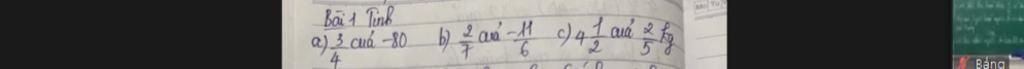 Bài 1 Tính
a) 3/4 cuả -80 b) 2/7 cuả -11/6 c) 4 1/2 cuả 2/5 kg
Bảng